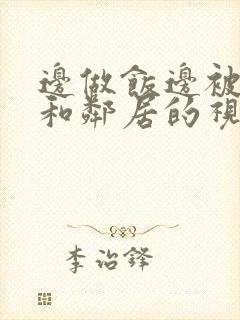 邊做飯邊被
和鄰居的視
李治鋒